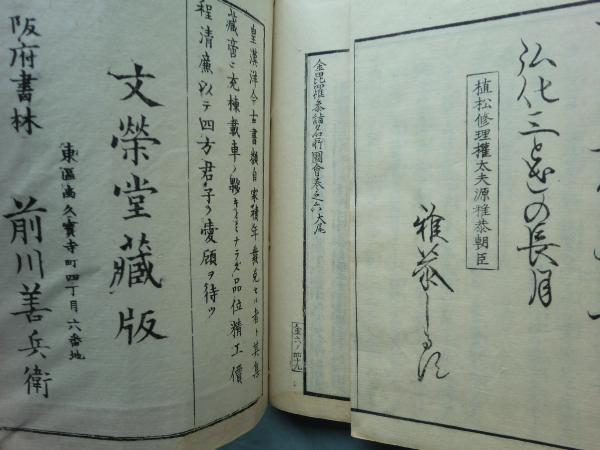 弘化三とせの長月
植松修理權太夫源雅恭朝臣
雅恭しるす
金毘羅參詣名所圖會卷之六大尾
金六ノ四十九
皇漢洋今古書類自家積年發兌セル者ト其集
藏啻ニ充棟載車ノ夥キノミナラズ品位精工價
程清廉以テ四方君子ノ愛顧ヲ待ツ
文榮堂藏版
東區南久寶寺町四丁目六番地
阪府書林 前川善兵衛